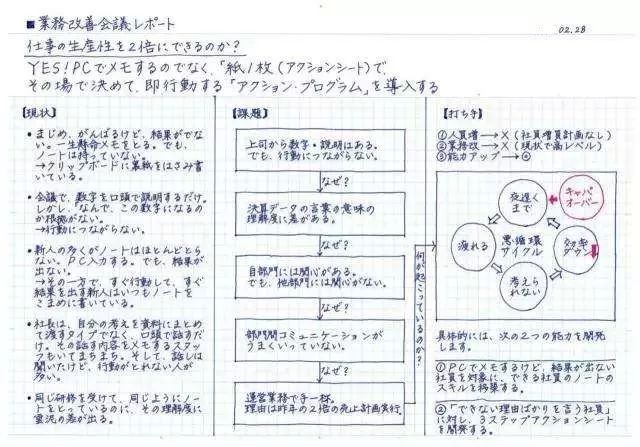 ■業務改善会議レポート
02.28
仕事の生産性を2倍にできるのか?
YES!PCでメモするのでなく、「紙1枚(アクションシート)で、
その場で決めて、即行動する「アクション・プログラム」を導入する
【現状】
• まじめ、がんばるけど、結果がでな
い。一生懸命メモをとる。でも、
ノートは持っていない。
→クリップボードに裏紙をはさみ書
いている。
• 会議で、数字を口頭で説明するだけ。
しかし、「なんで、この数字になるの
か根拠がない。
→行動につながらない。
• 新人の多くがノートはほとんどとら
ない。PC入力する。でも、結果が
出ない。
→その一方で、すぐ行動して、すぐ
結果を出す新人はいつもノートを
こまめに書いている。
• 社長は、自分の考えを資料にまとめ
て渡すタイプでなく、口頭で話すだ
け。その話す内容をメモするスタッ
フもいてまちまち。そして、話しは
聞いたけど、行動がとれない人が
多い。
• 同じ研修を受けて、同じようにノー
トをとっているのに、その理解度に
雲泥の差が出る。
【課題】
上司から数字・説明はある。
でも、行動につながらない。
なぜ?
決算データの言葉の意味の
理解度に差がある。
なぜ?
自部門には関心がある。
でも、他部門には関心がない。
なぜ?
部門間コミュニケーションが
うまくいっていない。
なぜ?
運営業務で手一杯。
理由は昨年の2倍の売上計画実行。
何が起こっているのか?
【打ち手】
①人員増→×(社員増員計画なし)
②業務改→×(現状で高レベル)
③能力アップ→◎
夜遅く
まで
キャパ
オーバー
疲れる
悪循環
サイクル
効率
ダウン
考えら
れない
具体的には、次の2つの能力を開発
します。
①PCでメモするけど、結果が出ない
社員を対象に、できる社員のノートの
スキルを構築する。
②「できない理由ばかりを言う社員」
に対し、3ステップアクションシート
を開発する。